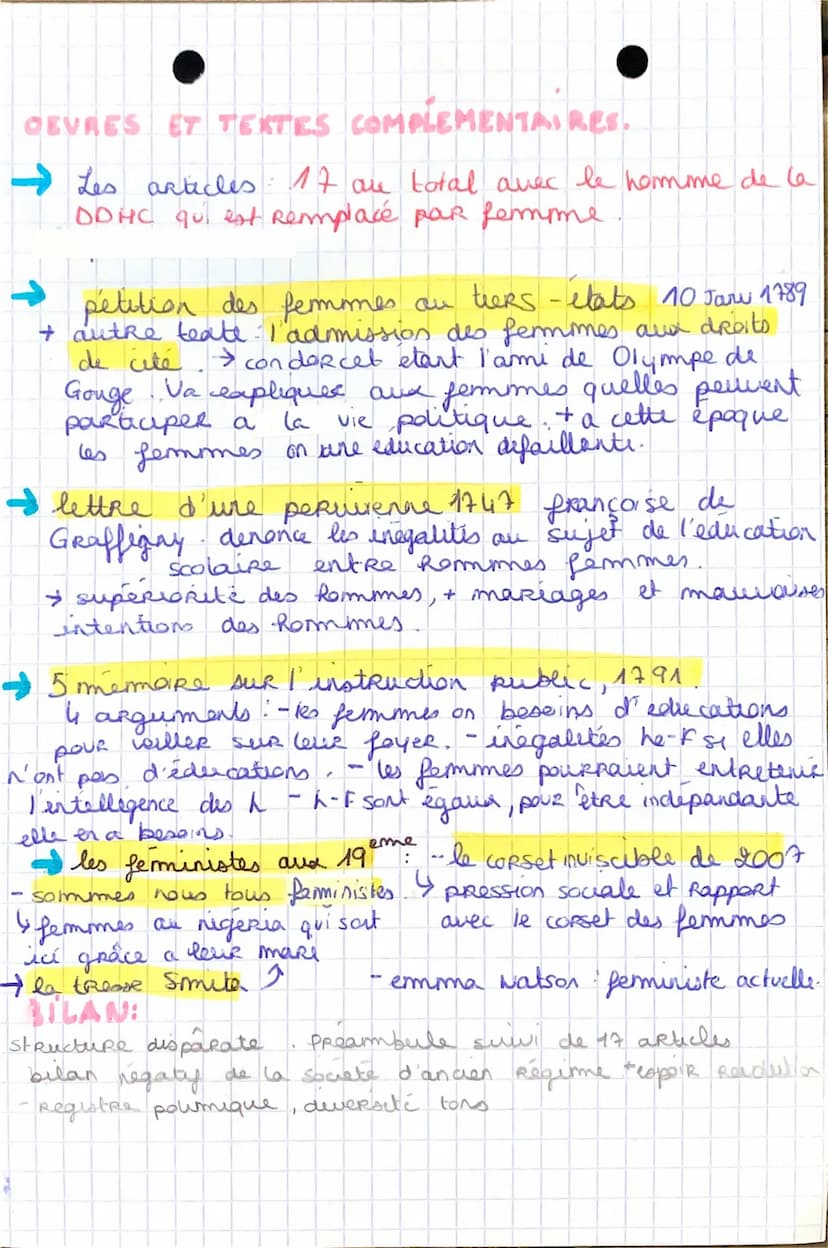 OEVRES ET TEXTES COMPLÉMENTAIRES.
→ Les articles : 17 au total avec le homme de la
DDHC qui est remplacé par femme.
→ pétition des femmes au tiers-états 10 Janv 1789
+ autre texte : l'admission des femmes aux droits
de cité. → condorcet étant l'ami de Olympe de
Gouge. Va expliquer aux femmes quelles peuvent
participer a la vie politique. + a cette époque
les femmes on une éducation défaillante.
→ lettre d'une peruvienne 1747 françoise de
Graffigny. denonce les inégalités au sujet de l'éducation
scolaire entre hommes femmes.
→ supériorité des hommes, + mariages et mauvaises
intentions des hommes.
→ 5 mémoire sur l'instruction public, 1791.
4 arguments : - les femmes on besoins d'educations
pour veiller sur leur foyer. - inégalités he-F si elles
n'ont pas d'éducations. - les femmes pourraient entretenir
l'intellegence des h - h-F sont égaux, pour être indépandante
elle en a besoins.
→ les féministes aux 19eme : - le corset inviscible de 2007
- sommes nous tous féministes. ↳ pression sociale et Rapport
↳ femmes au nigeria qui sort avec le corset des femmes
ici grâce a leur mari
→ la tresse Smita ↗ - emma watson : feministe actuelle.
BILAN:
structure disparate. Préambule suivi de 17 articles
bilan négatif de la société d'ancien Régime + espoir
- Registre polmique, diversité tons